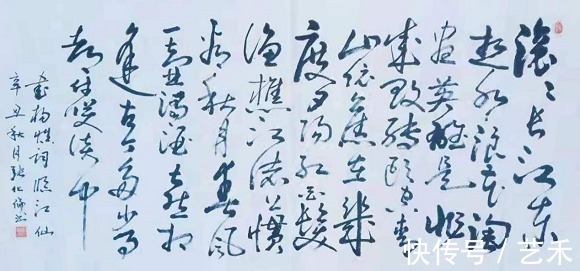 滚〻長江东
逝水浪花淘
尽英雄是非
成敗轉頭空青
山依舊在幾
度夕陽红白髮
渔樵江渚上慣
看秋月春风
一壶濁酒喜相
逢古今多少事
都付笑谈中
书杨慎词临江仙
辛丑秋月張化
快传号 / 艺禾